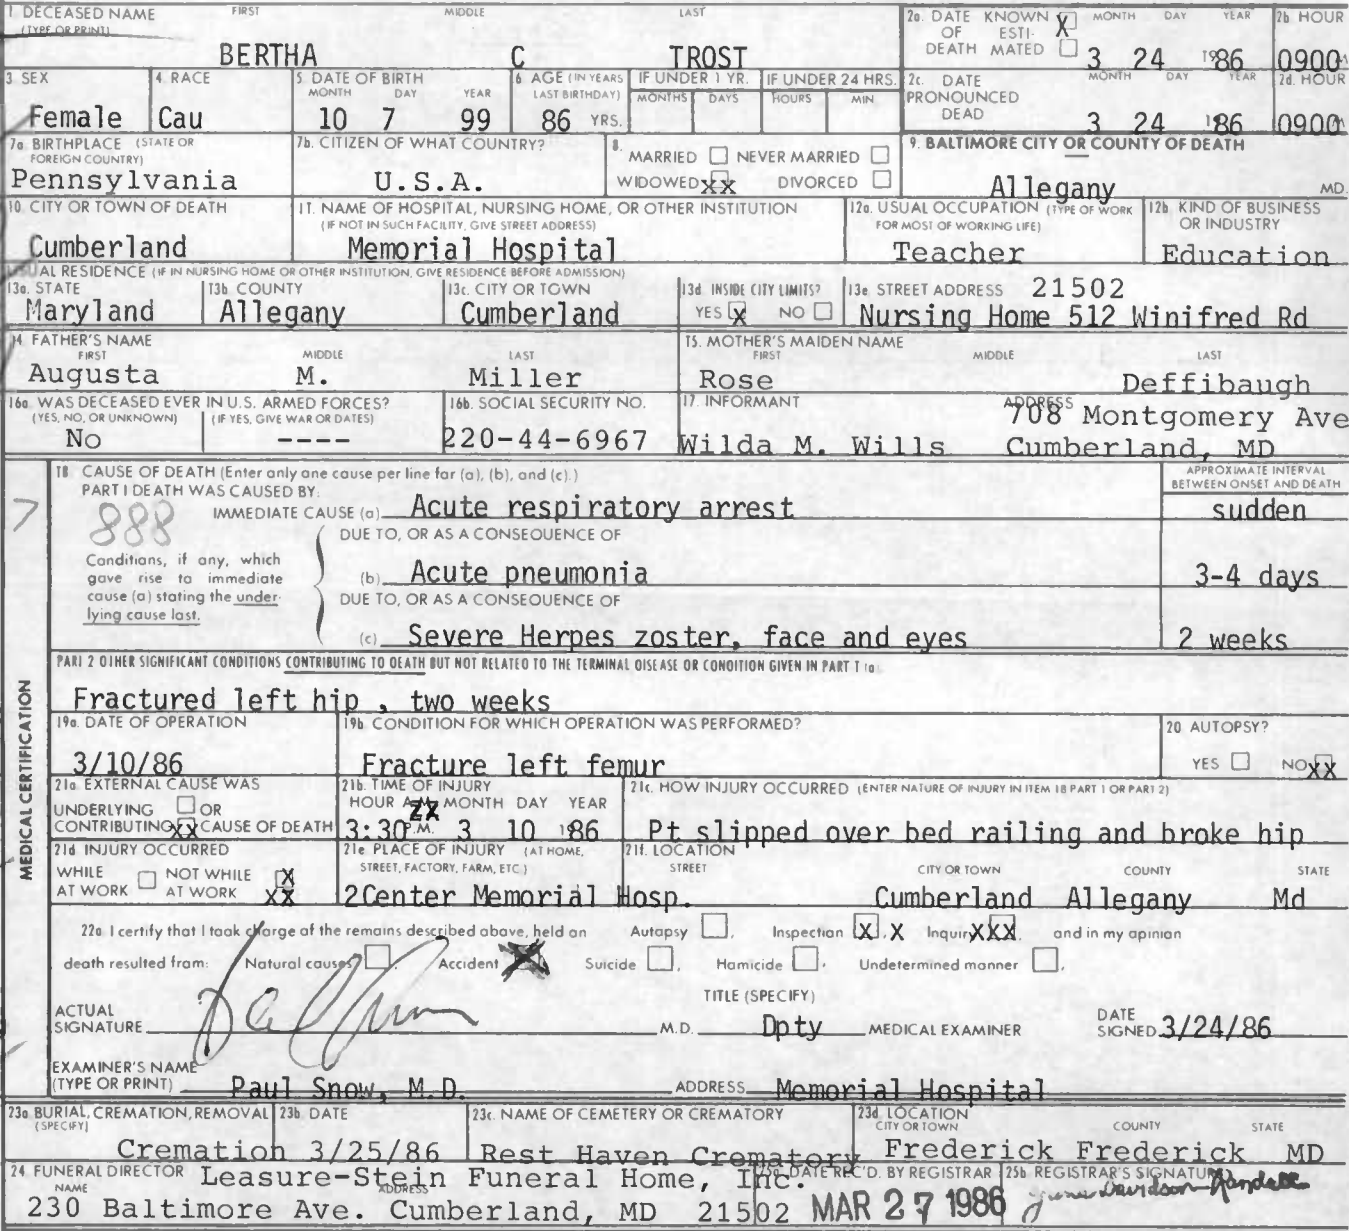 1. DECEASED NAME FIRST MIDDLE LAST
(TYPE OR PRINT)
BERTHA C TROST
2a. DATE OF DEATH KNOWN X ESTIMATED MONTH DAY YEAR 2b HOUR
3 24 1986 0900
3 SEX 4. RACE 5. DATE OF BIRTH MONTH DAY YEAR 6 AGE (IN YEARS LAST BIRTHDAY) IF UNDER 1 YR. MONTHS DAYS IF UNDER 24 HRS. HOURS MIN.
Female Cau 10 7 99 86 YRS.
2c. DATE PRONOUNCED DEAD MONTH DAY YEAR 2d. HOUR
3 24 1986 0900
7a. BIRTHPLACE (STATE OR FOREIGN COUNTRY)
Pennsylvania
7b. CITIZEN OF WHAT COUNTRY?
U.S.A.
8. MARRIED NEVER MARRIED
WIDOWED XX DIVORCED
9. BALTIMORE CITY OR COUNTY OF DEATH
Allegany MD.
10. CITY OR TOWN OF DEATH
Cumberland
11. NAME OF HOSPITAL, NURSING HOME, OR OTHER INSTITUTION
(IF NOT IN SUCH FACILITY, GIVE STREET ADDRESS)
Memorial Hospital
12a. USUAL OCCUPATION (TYPE OF WORK FOR MOST OF WORKING LIFE)
Teacher
12b. KIND OF BUSINESS OR INDUSTRY
Education
AL RESIDENCE (IF IN NURSING HOME OR OTHER INSTITUTION, GIVE RESIDENCE BEFORE ADMISSION)
13a. STATE 13b. COUNTY 13c. CITY OR TOWN 13d. INSIDE CITY LIMITS? 13e. STREET ADDRESS 21502
Maryland Allegany Cumberland YES X NO Nursing Home 512 Winifred Rd
14. FATHER'S NAME FIRST MIDDLE LAST
Augusta M. Miller
15. MOTHER'S MAIDEN NAME FIRST MIDDLE LAST
Rose Deffibaugh
16a. WAS DECEASED EVER IN U.S. ARMED FORCES?
(YES, NO, OR UNKNOWN) (IF YES, GIVE WAR OR DATES)
No ----
16b. SOCIAL SECURITY NO.
220-44-6967
17. INFORMANT ADDRESS
Wilda M. Wills 708 Montgomery Ave
Cumberland, MD
MEDICAL CERTIFICATION
7
18 CAUSE OF DEATH (Enter only one cause per line for (a), (b), and (c).)
PART I DEATH WAS CAUSED BY:
APPROXIMATE INTERVAL BETWEEN ONSET AND DEATH
888
IMMEDIATE CAUSE (a) Acute respiratory arrest sudden
DUE TO, OR AS A CONSEQUENCE OF
Conditions, if any, which gave rise to immediate cause (a) stating the underlying cause last.
(b) Acute pneumonia 3-4 days
DUE TO, OR AS A CONSEQUENCE OF
(c) Severe Herpes zoster, face and eyes 2 weeks
PART 2 OTHER SIGNIFICANT CONDITIONS CONTRIBUTING TO DEATH BUT NOT RELATED TO THE TERMINAL DISEASE OR CONDITION GIVEN IN PART 1 (a)
Fractured left hip , two weeks
19a. DATE OF OPERATION
3/10/86
19b. CONDITION FOR WHICH OPERATION WAS PERFORMED?
Fracture left femur
20. AUTOPSY?
YES NO XX
21a. EXTERNAL CAUSE WAS
UNDERLYING OR
CONTRIBUTING XX CAUSE OF DEATH
21b. TIME OF INJURY
HOUR A.M. MONTH DAY YEAR
3:30 P.M. 3 10 1986
21c. HOW INJURY OCCURRED (ENTER NATURE OF INJURY IN ITEM 18 PART 1 OR PART 2)
Pt slipped over bed railing and broke hip
21d. INJURY OCCURRED
WHILE AT WORK NOT WHILE AT WORK X XX
21e. PLACE OF INJURY (AT HOME, STREET, FACTORY, FARM, ETC.)
21f. LOCATION STREET CITY OR TOWN COUNTY STATE
2Center Memorial Hosp. Cumberland Allegany Md
22a. I certify that I took charge of the remains described above, held an Autopsy , Inspection X , X Inquiry XXX , and in my opinion
death resulted from: Natural causes , Accident X Suicide , Homicide , Undetermined manner .
ACTUAL SIGNATURE M.D.
TITLE (SPECIFY)
Dpty MEDICAL EXAMINER
DATE SIGNED 3/24/86
EXAMINER'S NAME
(TYPE OR PRINT) Paul Snow, M.D. ADDRESS Memorial Hospital
23a. BURIAL, CREMATION, REMOVAL (SPECIFY) 23b. DATE 23c. NAME OF CEMETERY OR CREMATORY 23d. LOCATION CITY OR TOWN COUNTY STATE
Cremation 3/25/86 Rest Haven Crematory Frederick Frederick MD
24. FUNERAL DIRECTOR NAME ADDRESS
Leasure-Stein Funeral Home, Inc.
230 Baltimore Ave. Cumberland, MD 21502
25a. DATE REC'D. BY REGISTRAR
MAR 27 1986
25b. REGISTRAR'S SIGNATURE
Davidson Randall